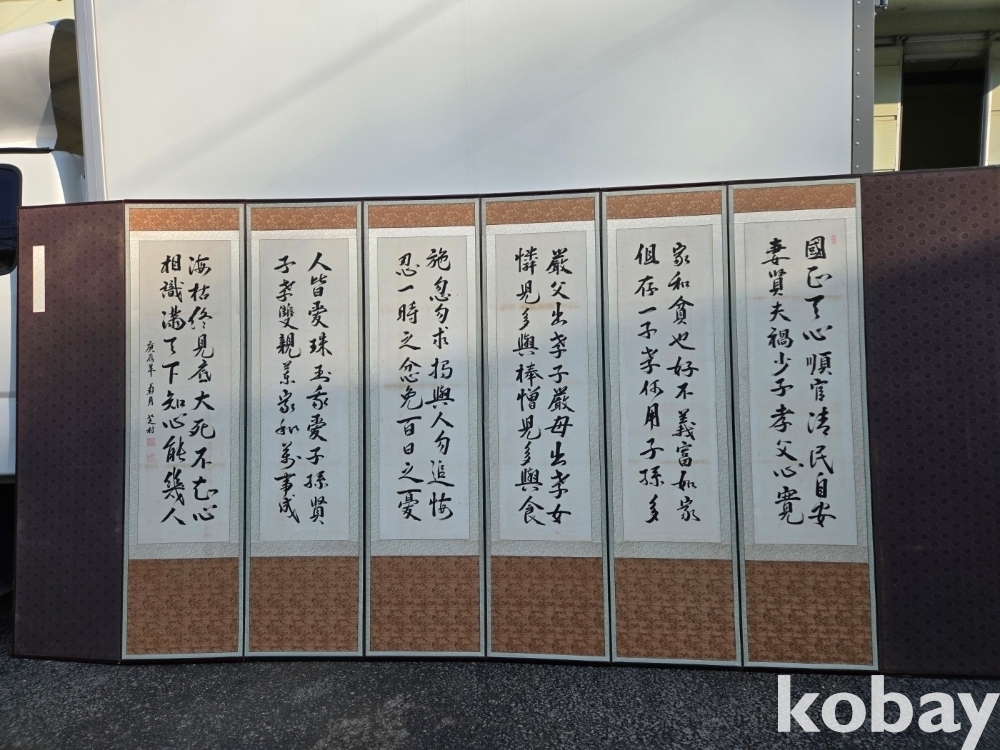 國正天心順官清民自安
妻賢夫禍少子孝父心寬
家和貧也好不義富如家
但存一子孝何用子孫多
嚴父出孝子嚴母出孝女
憐兒多與棒憎兒多與食
施恩勿求报與人勿追悔
忍一時之忿免百日之憂
人皆愛珠玉我愛子孫賢
子孝雙親樂家和萬事成
海枯終見底大死不知心
相識滿天下知心能幾人
庚辰年 菊月 芝村
kobay